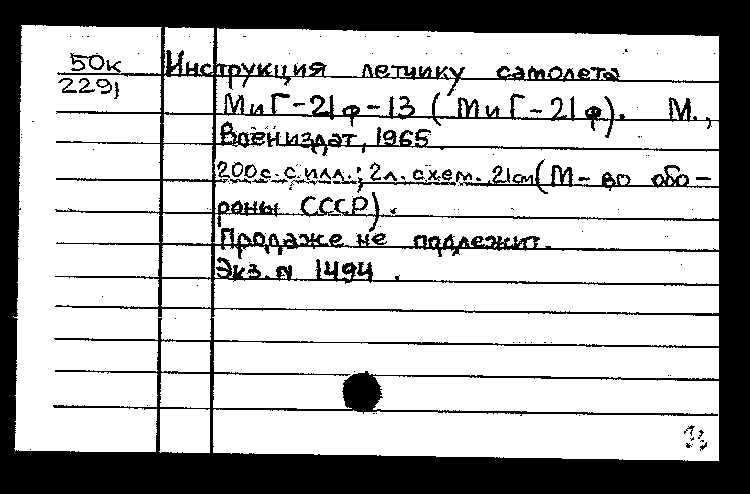 50к
2291
Инструкция летчику самолета
МиГ-21ф-13 (МиГ-21ф). М.,
Воениздат, 1965.
200с. с илл.; 2л. схем. 21см (М-во обо-
роны СССР).
Продаже не подлежит.
Экз. N 1494.